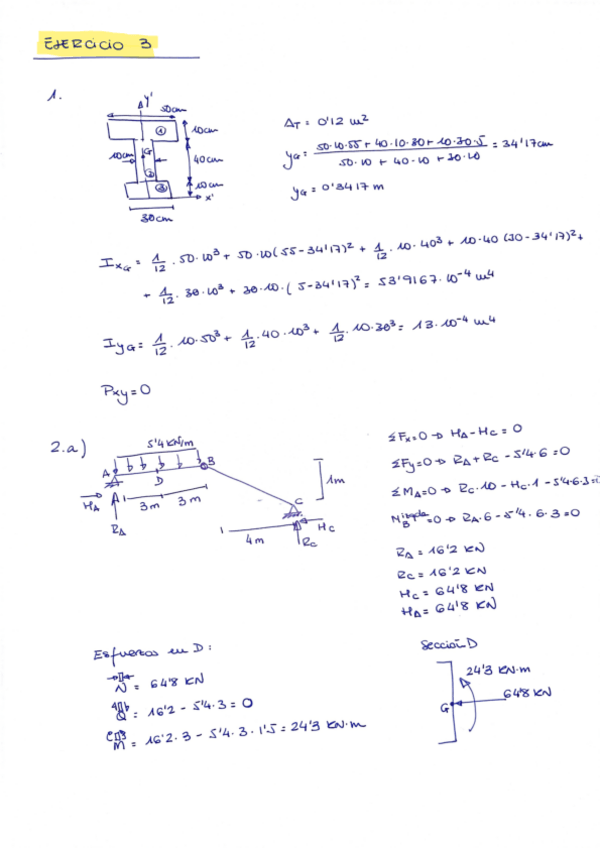 EJERCICIO 3
1.
y'
50cm
10cm
10cm
40cm
10cm
G
1
2
3
x'
30cm
A_T = 0'12 m²
y_G = (50·10·55 + 40·10·30 + 10·30·5) / (50·10 + 40·10 + 30·10) = 34'17cm
y_G = 0'3417 m
I_xG = 1/12 · 50·10³ + 50·10(55-34'17)² + 1/12 · 10·40³ + 10·40(30-34'17)² +
+ 1/12 · 30·10³ + 30·10·(5-34'17)² = 53'9167·10⁻⁴ m⁴
I_yG = 1/12 · 10·50³ + 1/12 · 40·10³ + 1/12 · 10·30³ = 13·10⁻⁴ m⁴
Pxy = 0
2.a)
5'4 KN/m
A
B
D
C
1m
H_A
R_A
3m
3m
4m
R_C
H_C
ΣFx=0 → H_A - H_C = 0
ΣFy=0 → R_A + R_C - 5'4·6 = 0
ΣM_A=0 → R_C·10 - H_C·1 - 5'4·6·3=
M_B^izqda=0 → R_A·6 - 5'4·6·3=0
R_A = 16'2 KN
R_C = 16'2 KN
H_C = 64'8 KN
H_A = 64'8 KN
Esfuerzos en D:
N = 64'8 KN
Q = 16'2 - 5'4·3 = 0
M = 16'2·3 - 5'4·3·1'5 = 24'3 KN·m
Sección D
24'3 KN·m
64'8 KN
G